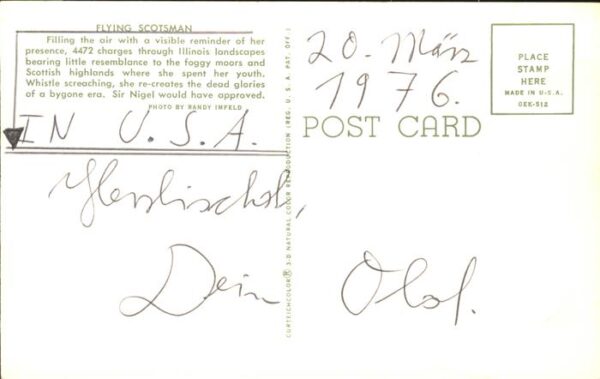 FLYING SCOTSMAN
Filling the air with a visible reminder of her
presence, 4472 charges through Illinois landscapes
bearing little resemblance to the foggy moors and
Scottish highlands where she spent her youth.
Whistle screaching, she re-creates the dead glories
of a bygone era. Sir Nigel would have approved.
PHOTO BY RANDY IMFELD
IN U.S.A.
Herzlichst,
Dein Olaf.
CURTEICHCOLOR® 3-D NATURAL COLOR REPRODUCTION (REG. U. S. A. PAT. OFF.)
20. März
1976.
POST CARD
PLACE
STAMP
HERE
MADE IN U.S.A.
0EK-512